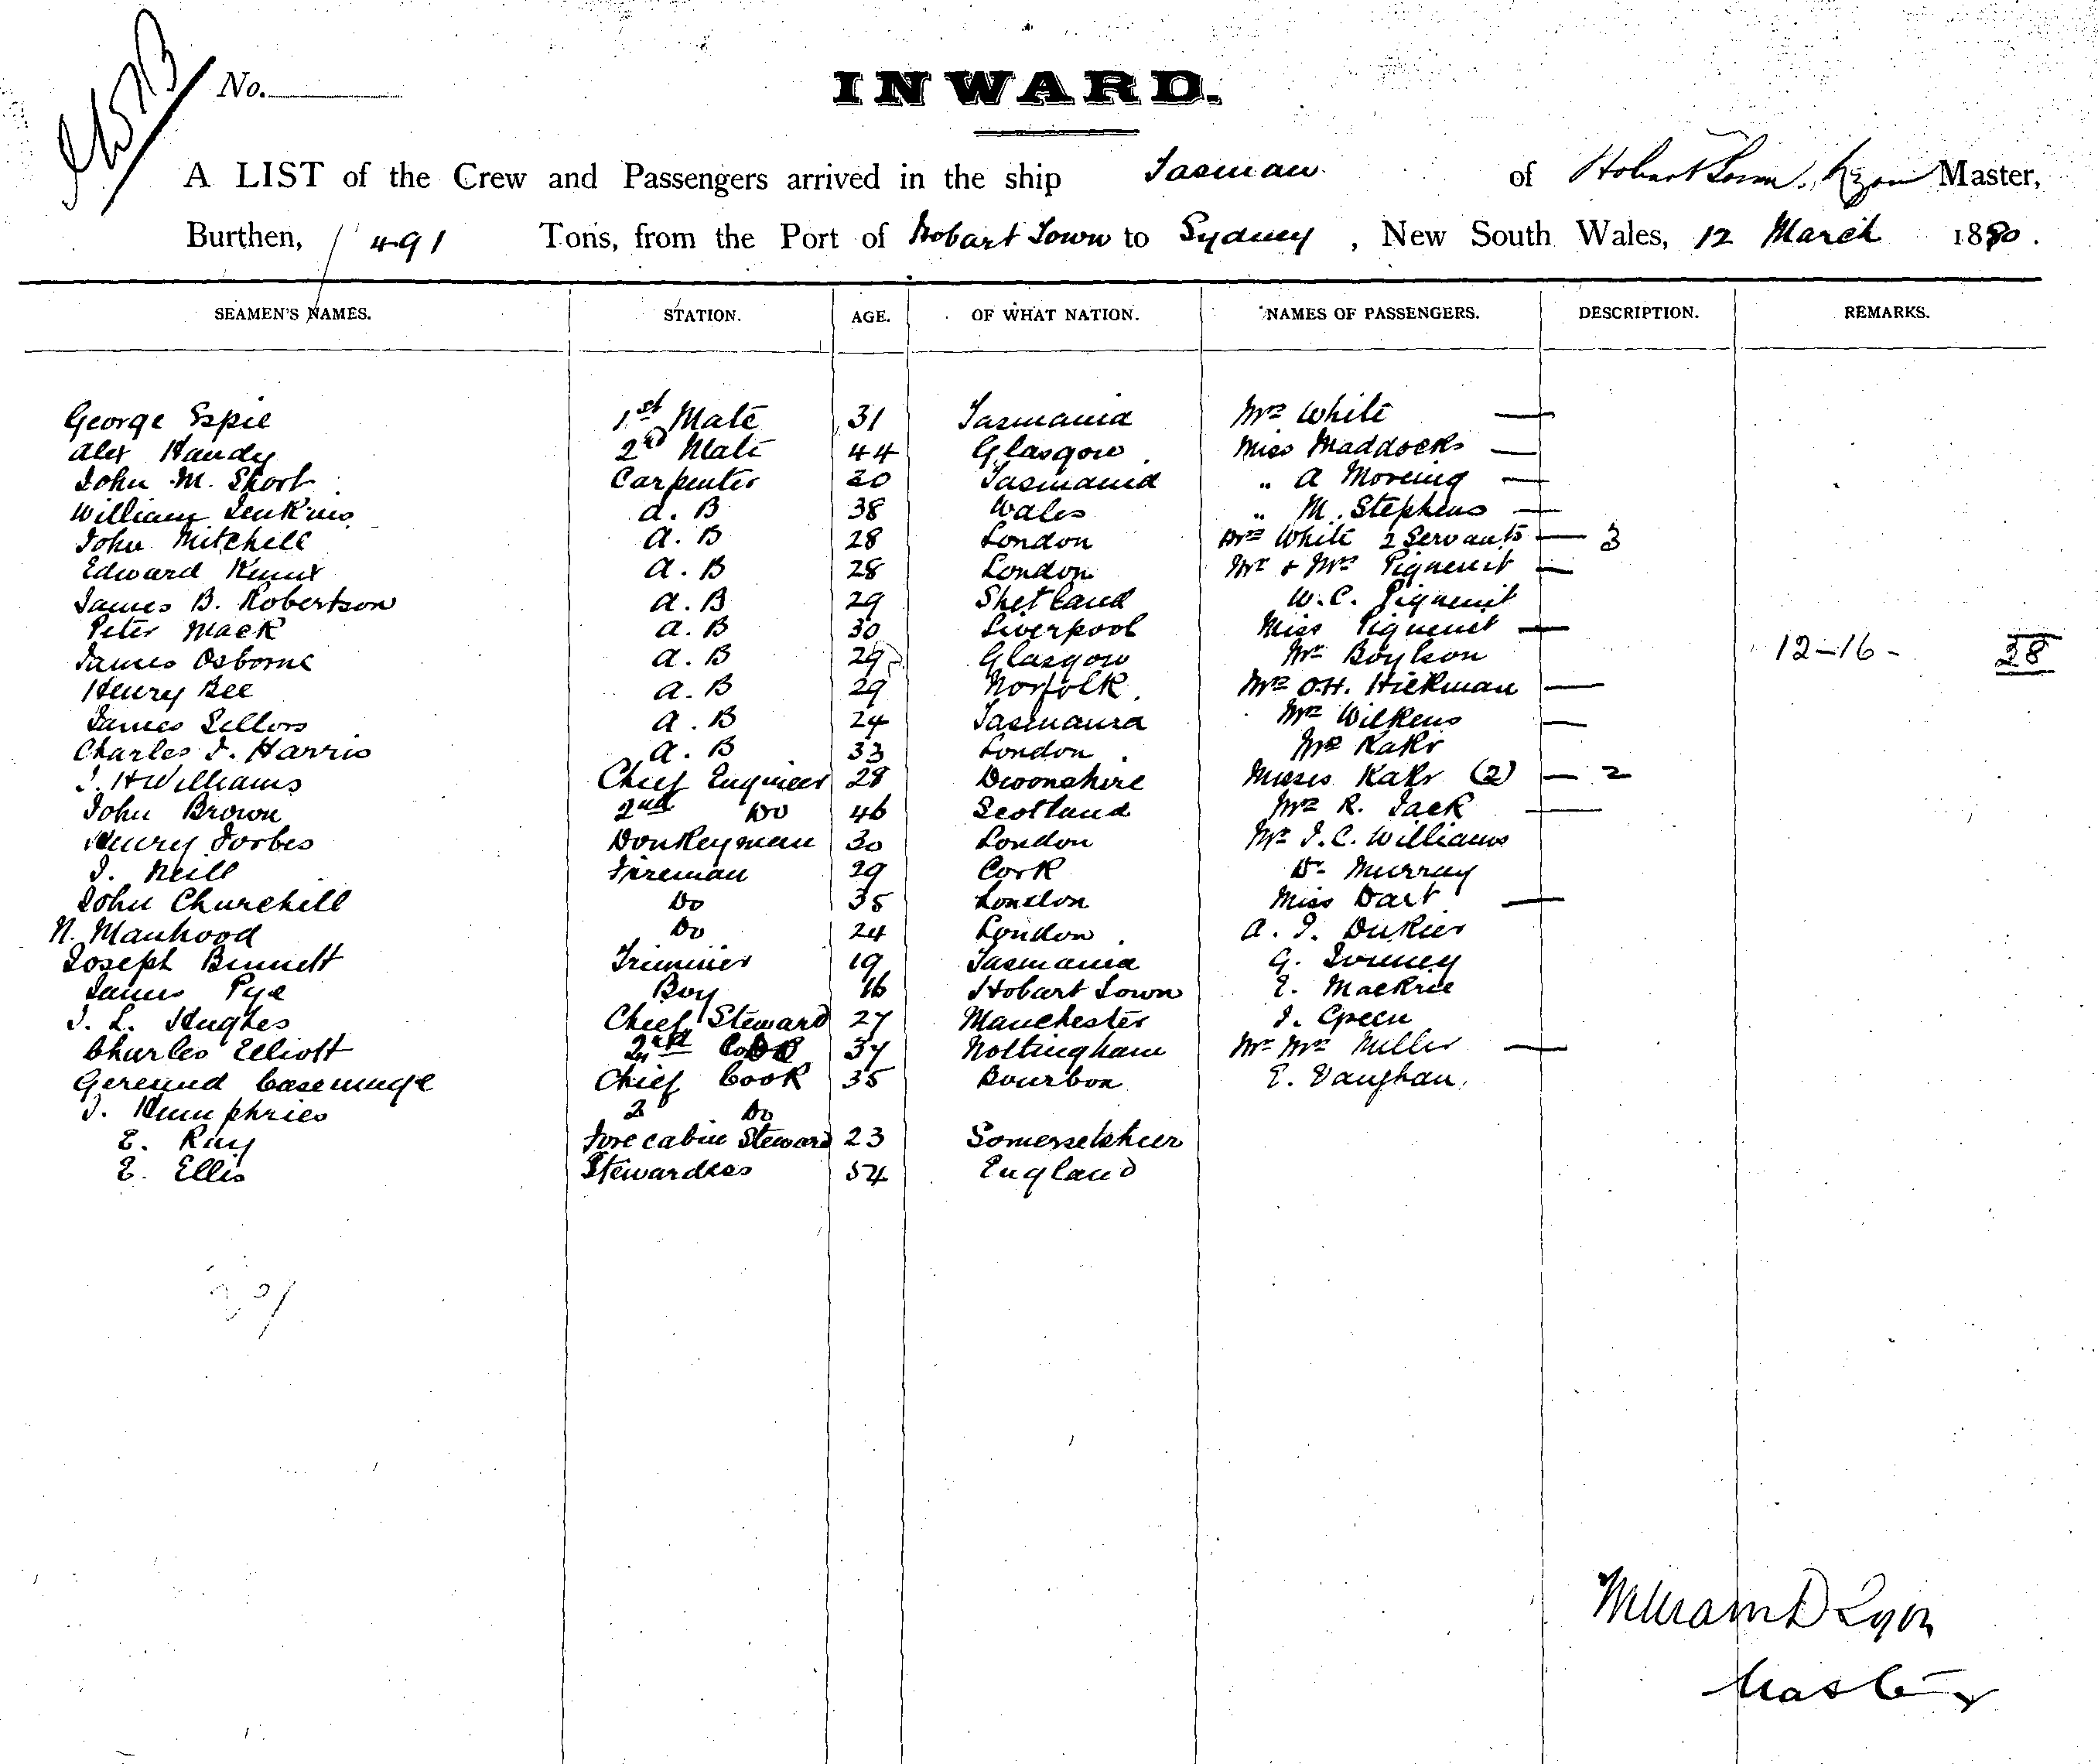 No.
INWARD.
A LIST of the Crew and Passengers arrived in the ship Tasman of Hobart Town, Lyon Master,
Burthen, 491 Tons, from the Port of Hobart Town to Sydney, New South Wales, 12 March 1880.
SEAMEN'S NAMES. STATION. AGE. OF WHAT NATION. NAMES OF PASSENGERS. DESCRIPTION. REMARKS.
George Espie 1st Mate 31 Tasmania Mrs White —
Alex Handy 2nd Mate 44 Glasgow Miss Maddocks —
John M. Short Carpenter 20 Tasmania " A Moreing —
William Jenkins A.B 38 Wales " M. Stephens —
John Mitchell A.B 28 London Mrs White 2 Servants — 3
Edward A.B 28 London Mr & Mrs Piguenit —
James B. Robertson A.B 29 Shetland W.C. Piguenit
Peter Mack A.B 30 Liverpool Miss Piguenit —
James Osborne A.B 29 Glasgow Mr Boylson 12–16 – 28
Henry Bee A.B 29 Norfolk Mrs O.H. Hickman —
James Sellors A.B 24 Tasmania Mrs Wilkens —
Charles J. Harris A.B 33 London Mr Kakr
J. H Williams Chief Engineer 28 Devonshire Misses Kakr (2) — 2
John Brown 2nd Do 46 Scotland Mrs R. Jack —
Henry Forbes Donkeyman 30 London Mr J.C. Williams
J. Neill Fireman 29 Cork Dr Murray
John Churchill Do 35 London Miss Dart —
N. Manhood Do 24 London A. J.
Joseph Bennett Trimmer 19 Tasmania G.
James Pye Boy 16 Hobart Town E. Mackrie
J. L. Hughes Chief Steward 27 Manchester J. Green
Charles Elliott 2nd 37 Nottingham Mr Mrs Miller —
Chief Cook 35 Bourbon E. Vaughan.
J. Humphries 2 Do
E. Ray Fore cabin Steward 23 Somersetshier
E. Ellis Stewardess 54 England
William D Lyon
Master